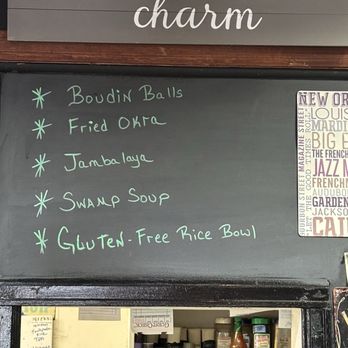 charm
* Boudin Balls
* Fried Okra
* Jambalaya
* Swamp Soup
* Gluten-Free Rice Bowl
NEW OR
LOUIS
MARDI
BIG E
THE FRENCH
JAZZ
FRENCHM
AUDUBO
GARDEN
JACKSON
BOURBON STREET MAGAZINE STREET
LET THE GOOD TIMES ROLL